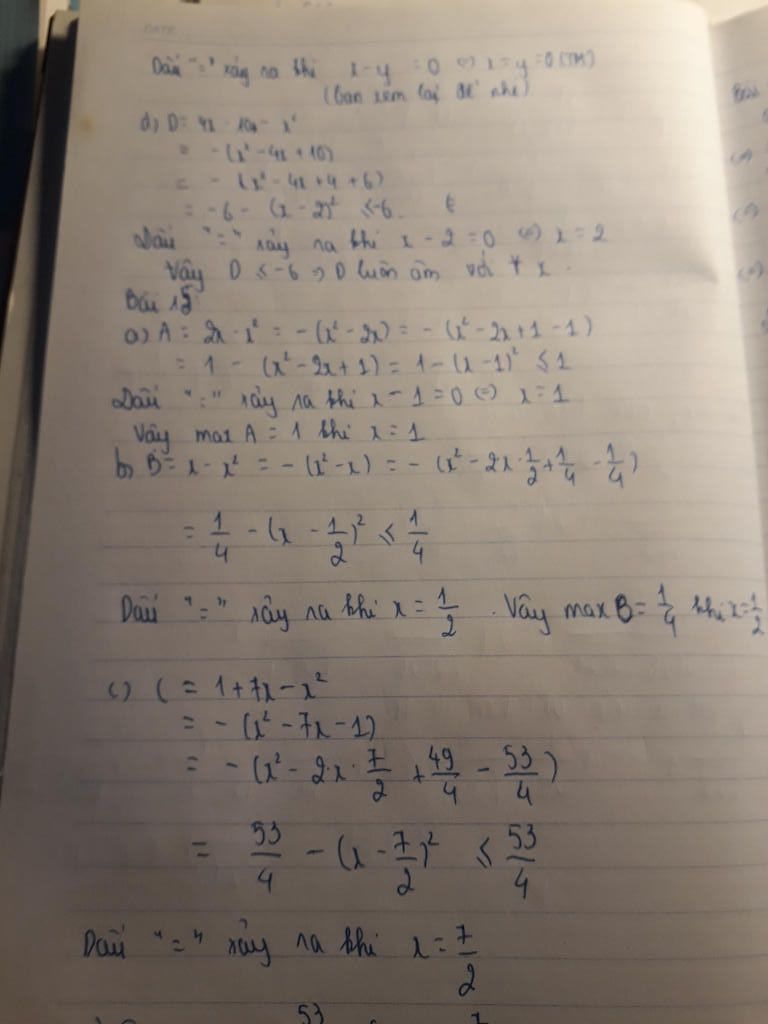 DATE
Dấu "=" xảy ra khi x - y = 0 <=> x = y = 0 (TM)
(bạn xem lại đề nhé)
d) D = 4x - 10 - x²
= -(x² - 4x + 10)
= - (x² - 4x + 4 + 6)
= -6 - (x - 2)² ≤ -6.
Dấu "=" xảy ra khi x - 2 = 0 <=> x = 2
Vậy D ≤ -6 => D luôn âm với ∀ x.
Bài 15:
a) A = 2x - x² = -(x² - 2x) = -(x² - 2x + 1 - 1)
= 1 - (x² - 2x + 1) = 1 - (x - 1)² ≤ 1
Dấu "=" xảy ra khi x - 1 = 0 <=> x = 1
Vậy max A = 1 khi x = 1
b) B = x - x² = -(x² - x) = -(x² - 2x · 1/2 + 1/4 - 1/4)
= 1/4 - (x - 1/2)² ≤ 1/4
Dấu "=" xảy ra khi x = 1/2. Vậy max B = 1/4 khi x = 1/2
c) C = 1 + 7x - x²
= -(x² - 7x - 1)
= -(x² - 2·x · 7/2 + 49/4 - 53/4)
= 53/4 - (x - 7/2)² ≤ 53/4
Dấu "=" xảy ra khi x = 7/2
53
Bài